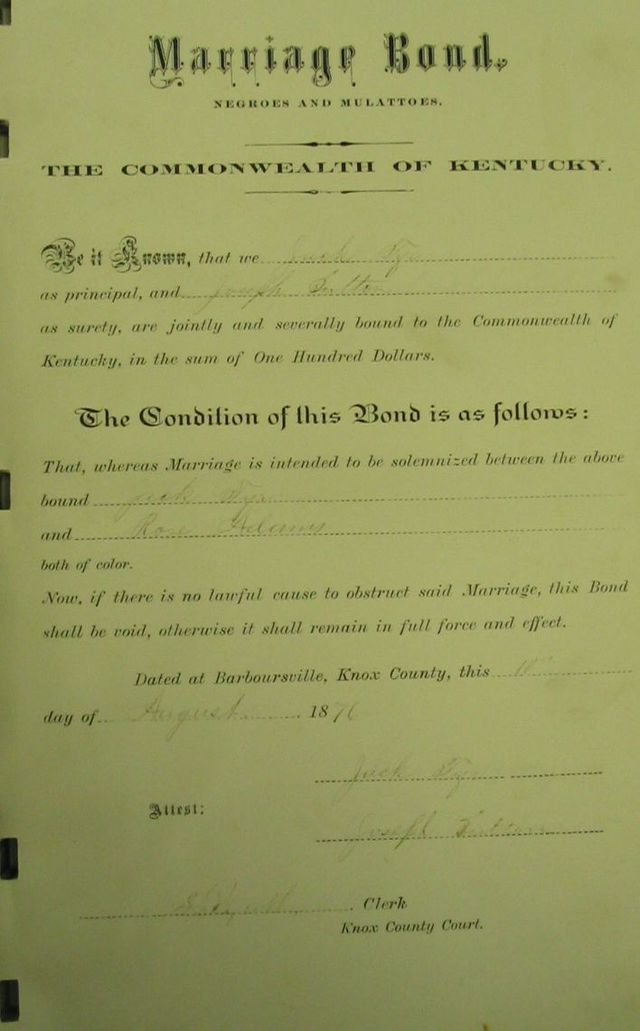 Marriage Bond.
NEGROES AND MULATTOES.
THE COMMONWEALTH OF KENTUCKY.
Be it Known, that we Jack
as principal, and Joseph
as surety, are jointly and severally bound to the Commonwealth of
Kentucky, in the sum of One Hundred Dollars.
The Condition of this Bond is as follows:
That, whereas Marriage is intended to be solemnized between the above
bound Jack
and Rose Adams
both of color.
Now, if there is no lawful cause to obstruct said Marriage, this Bond
shall be void, otherwise it shall remain in full force and effect.
Dated at Barboursville, Knox County, this
day of August 1876
Jack
Attest:
Joseph
Clerk
Knox County Court.